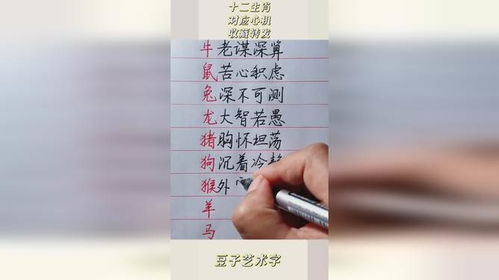 十二生肖
对应心机
收藏转发
牛老谋深算
鼠苦心积虑
兔深不可测
龙大智若愚
猪胸怀坦荡
狗沉着冷静
猴外
羊
马
豆子艺术字